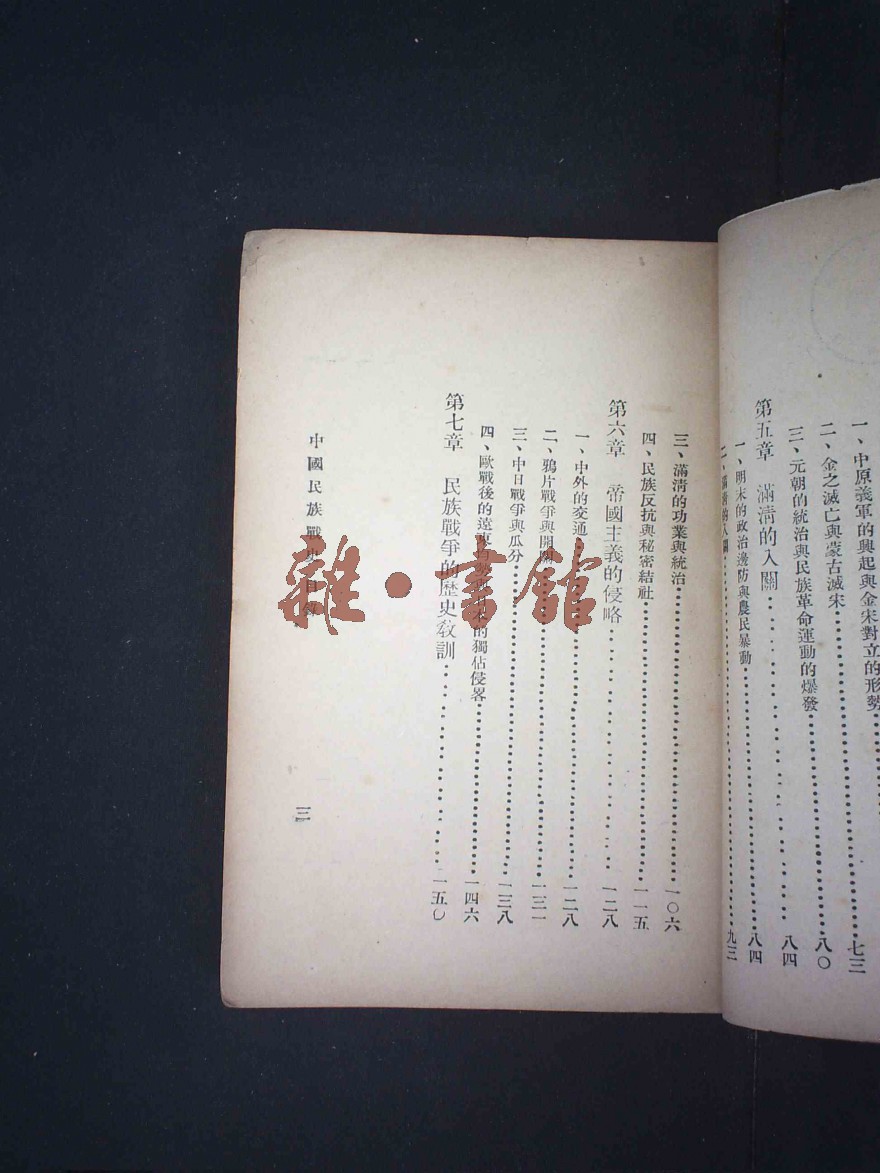 一、中原義軍的興起與金宋對立的形勢……七三
二、金之滅亡與蒙古滅宋……八〇
三、元朝的統治與民族革命運動的爆發……八四
第五章 滿清的入關……八四
一、明末的政治邊防與農民暴動……八四
二、滿清的入關……九三
三、滿清的功業與統治……一〇六
四、民族反抗與秘密結社……一一五
第六章 帝國主義的侵略……一二八
一、中外的交通……一二八
二、鴉片戰爭與開關……一三一
三、中日戰爭與瓜分……一三八
四、歐戰後的遠東 的獨佔侵畧……一四六
第七章 民族戰爭的歷史教訓……一五〇
中國民族戰史目錄
三
雜·書館